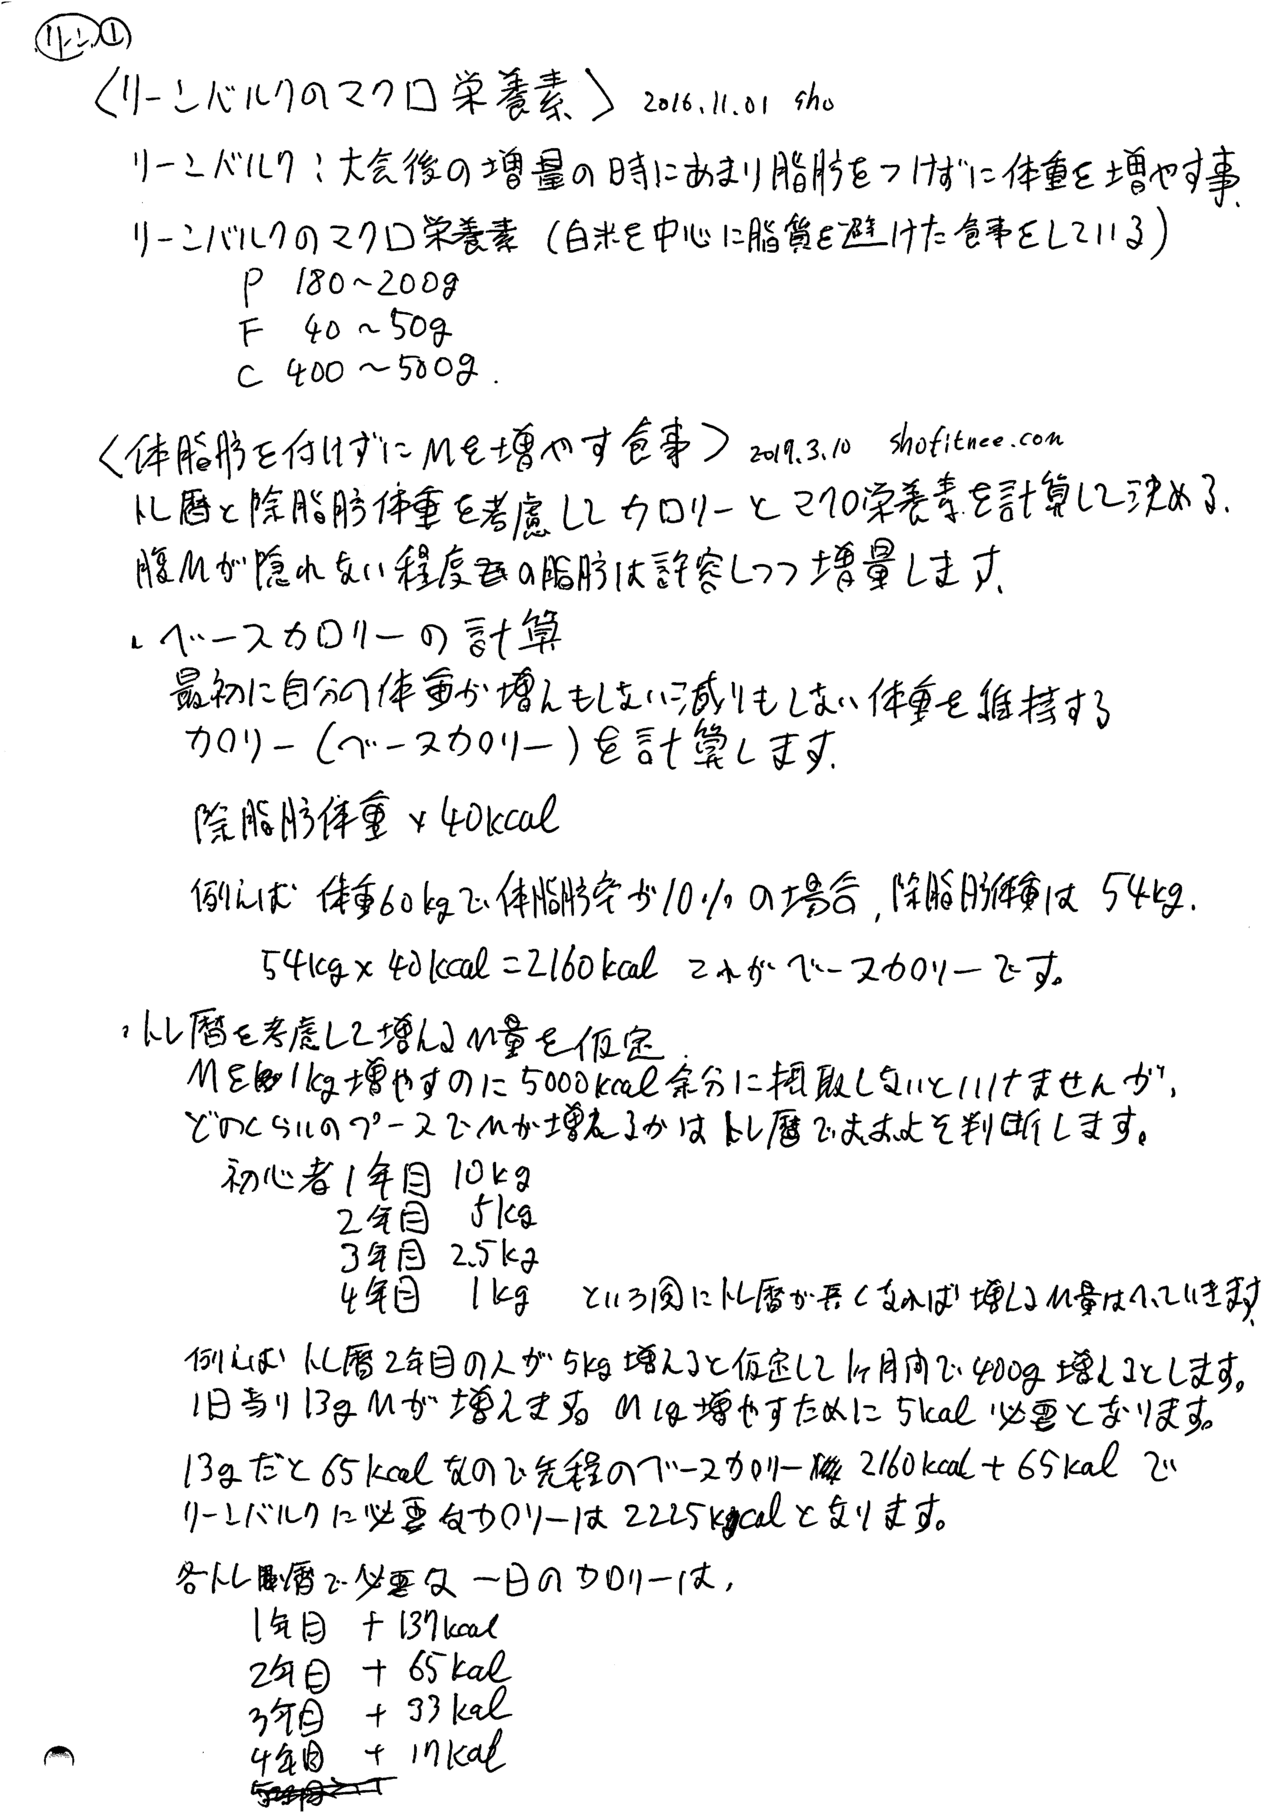 リーン①
〈リーンバルクのマクロ栄養素〉 2016.11.01 sho
リーンバルク：大会後の増量の時にあまり脂肪をつけずに体重を増やす事.
リーンバルクのマクロ栄養素（白米を中心に脂質を避けた食事をしている）
P 180〜200g
F 40〜50g
C 400〜500g.
〈体脂肪を付けずにMを増やす食事〉 2019.3.10 shofitnee.com
トレ暦と除脂肪体重を考慮してカロリーとマクロ栄養素を計算して決める.
腹Mが隠れない程度の脂肪は許容しつつ増量します.
・ベースカロリーの計算
最初に自分の体重が増えもしない減りもしない体重を維持する
カロリー（ベースカロリー）を計算します.
除脂肪体重×40kcal
例えば 体重60kgで体脂肪率が10%の場合, 除脂肪体重は 54kg.
54kg×40kcal=2160kcal これがベースカロリーです。
・トレ暦を考慮して増えるM量を仮定.
Mを1kg増やすのに5000kcal余分に摂取しないといけませんが,
どのくらいのペースでMが増えるかはトレ暦でおおよそ判断します。
初心者1年目 10kg
2年目 5kg
3年目 2.5kg
4年目 1kg という風にトレ暦が長くなれば増えるM量はへっていきます.
例えばトレ暦2年目の人が5kg増えると仮定して1ヶ月間で400g増えるとします。
1日当り13gMが増えます。M1g増やすために5kal必要となります。
13gだと65kcalなので先程のベースカロリー 2160kcal+65kalで
リーンバルクに必要なカロリーは2225kcalとなります。
各トレ暦で必要な一日のカロリーは,
1年目 +137kcal
2年目 +65kal
3年目 +33kal
4年目 +17kal